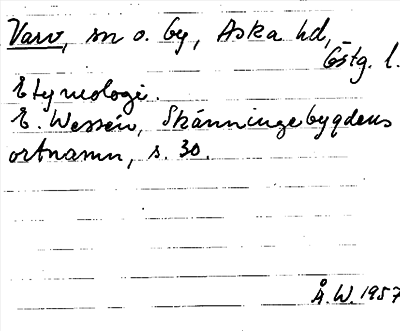 Varv, sn o. by, Aska hd,
Östg. l.
Etymologi.
E. Wessén, Skänningebygdens
ortnamn, s. 30.
Å. W. 1957